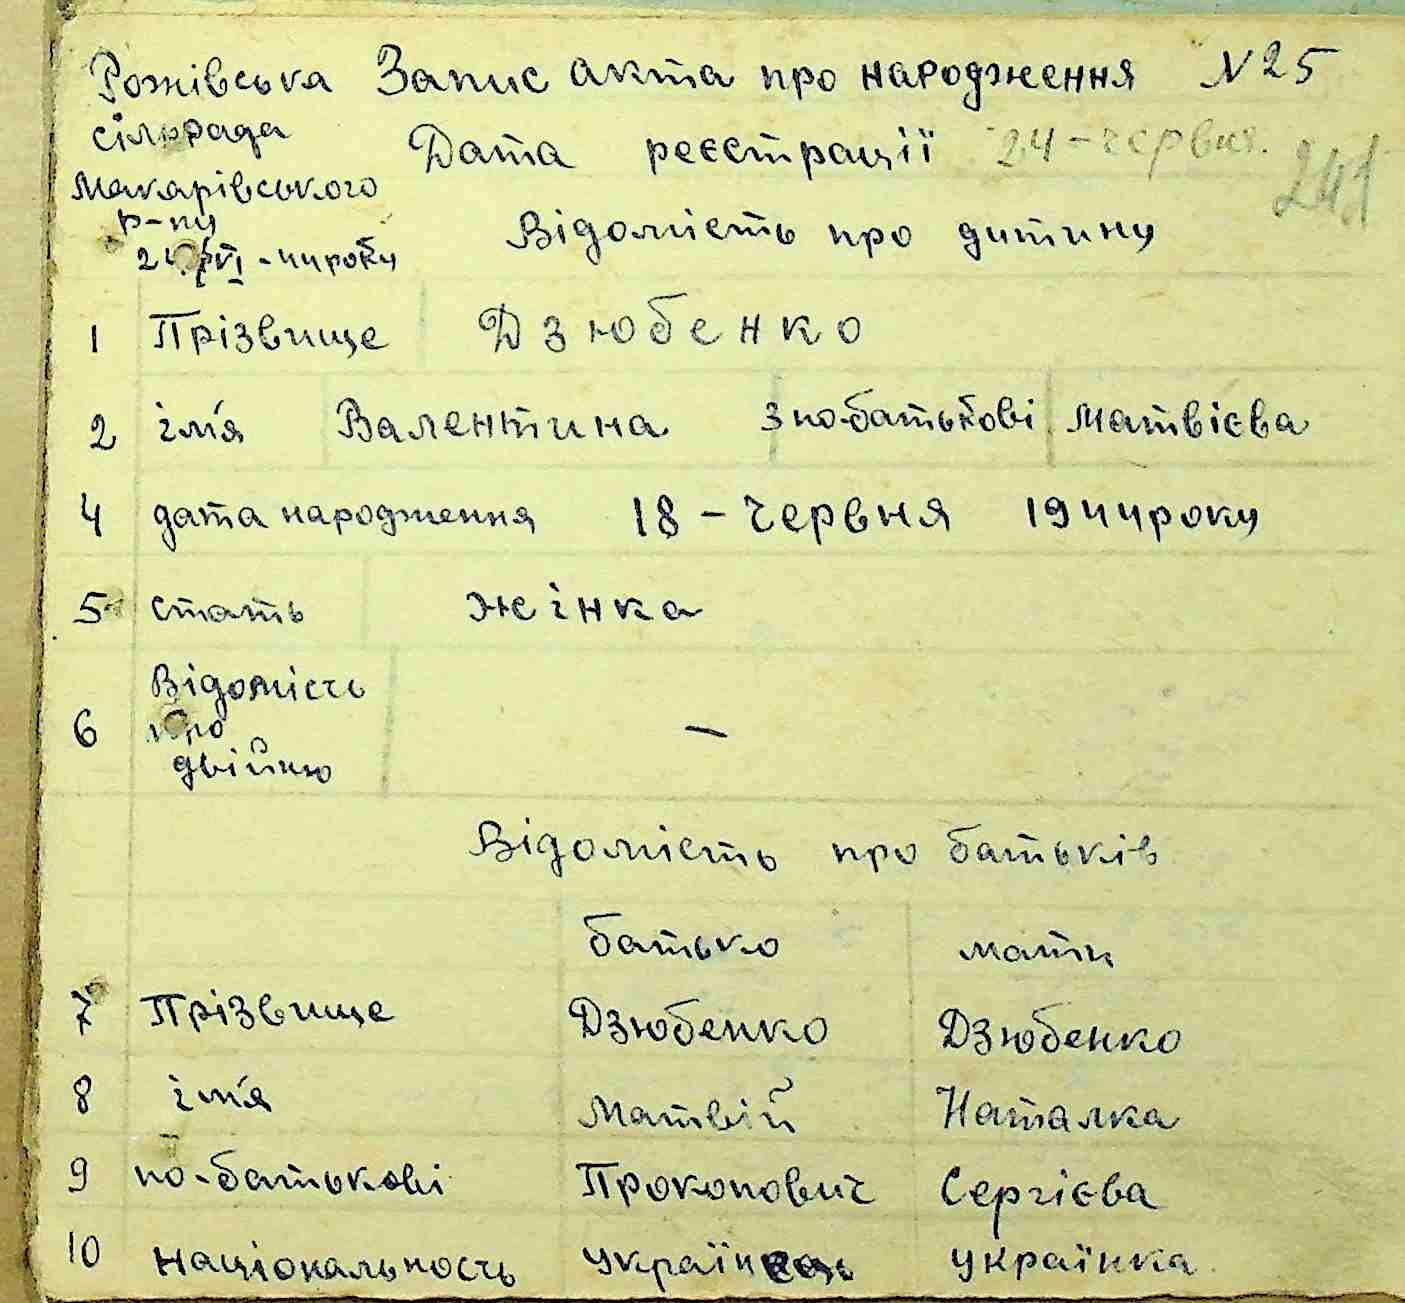 Рожівська Запис акта про народження N 25
сільрада Дата реєстрації 24-червня. 241
Макарівського
р-ну Відомість про дитину
24/VI-44року
1 Прізвище Дзюбенко
2 ім'я Валентина 3 по-батькові Матвієва
4 дата народження 18 - червня 1944року
5 стать жінка
Відомість
6 про —
двійню
Відомість про батьків
батько мати
7 Прізвище Дзюбенко Дзюбенко
8 ім'я Матвій Наталка
9 по-батькові Прокопович Сергієва
10 національность українець українка